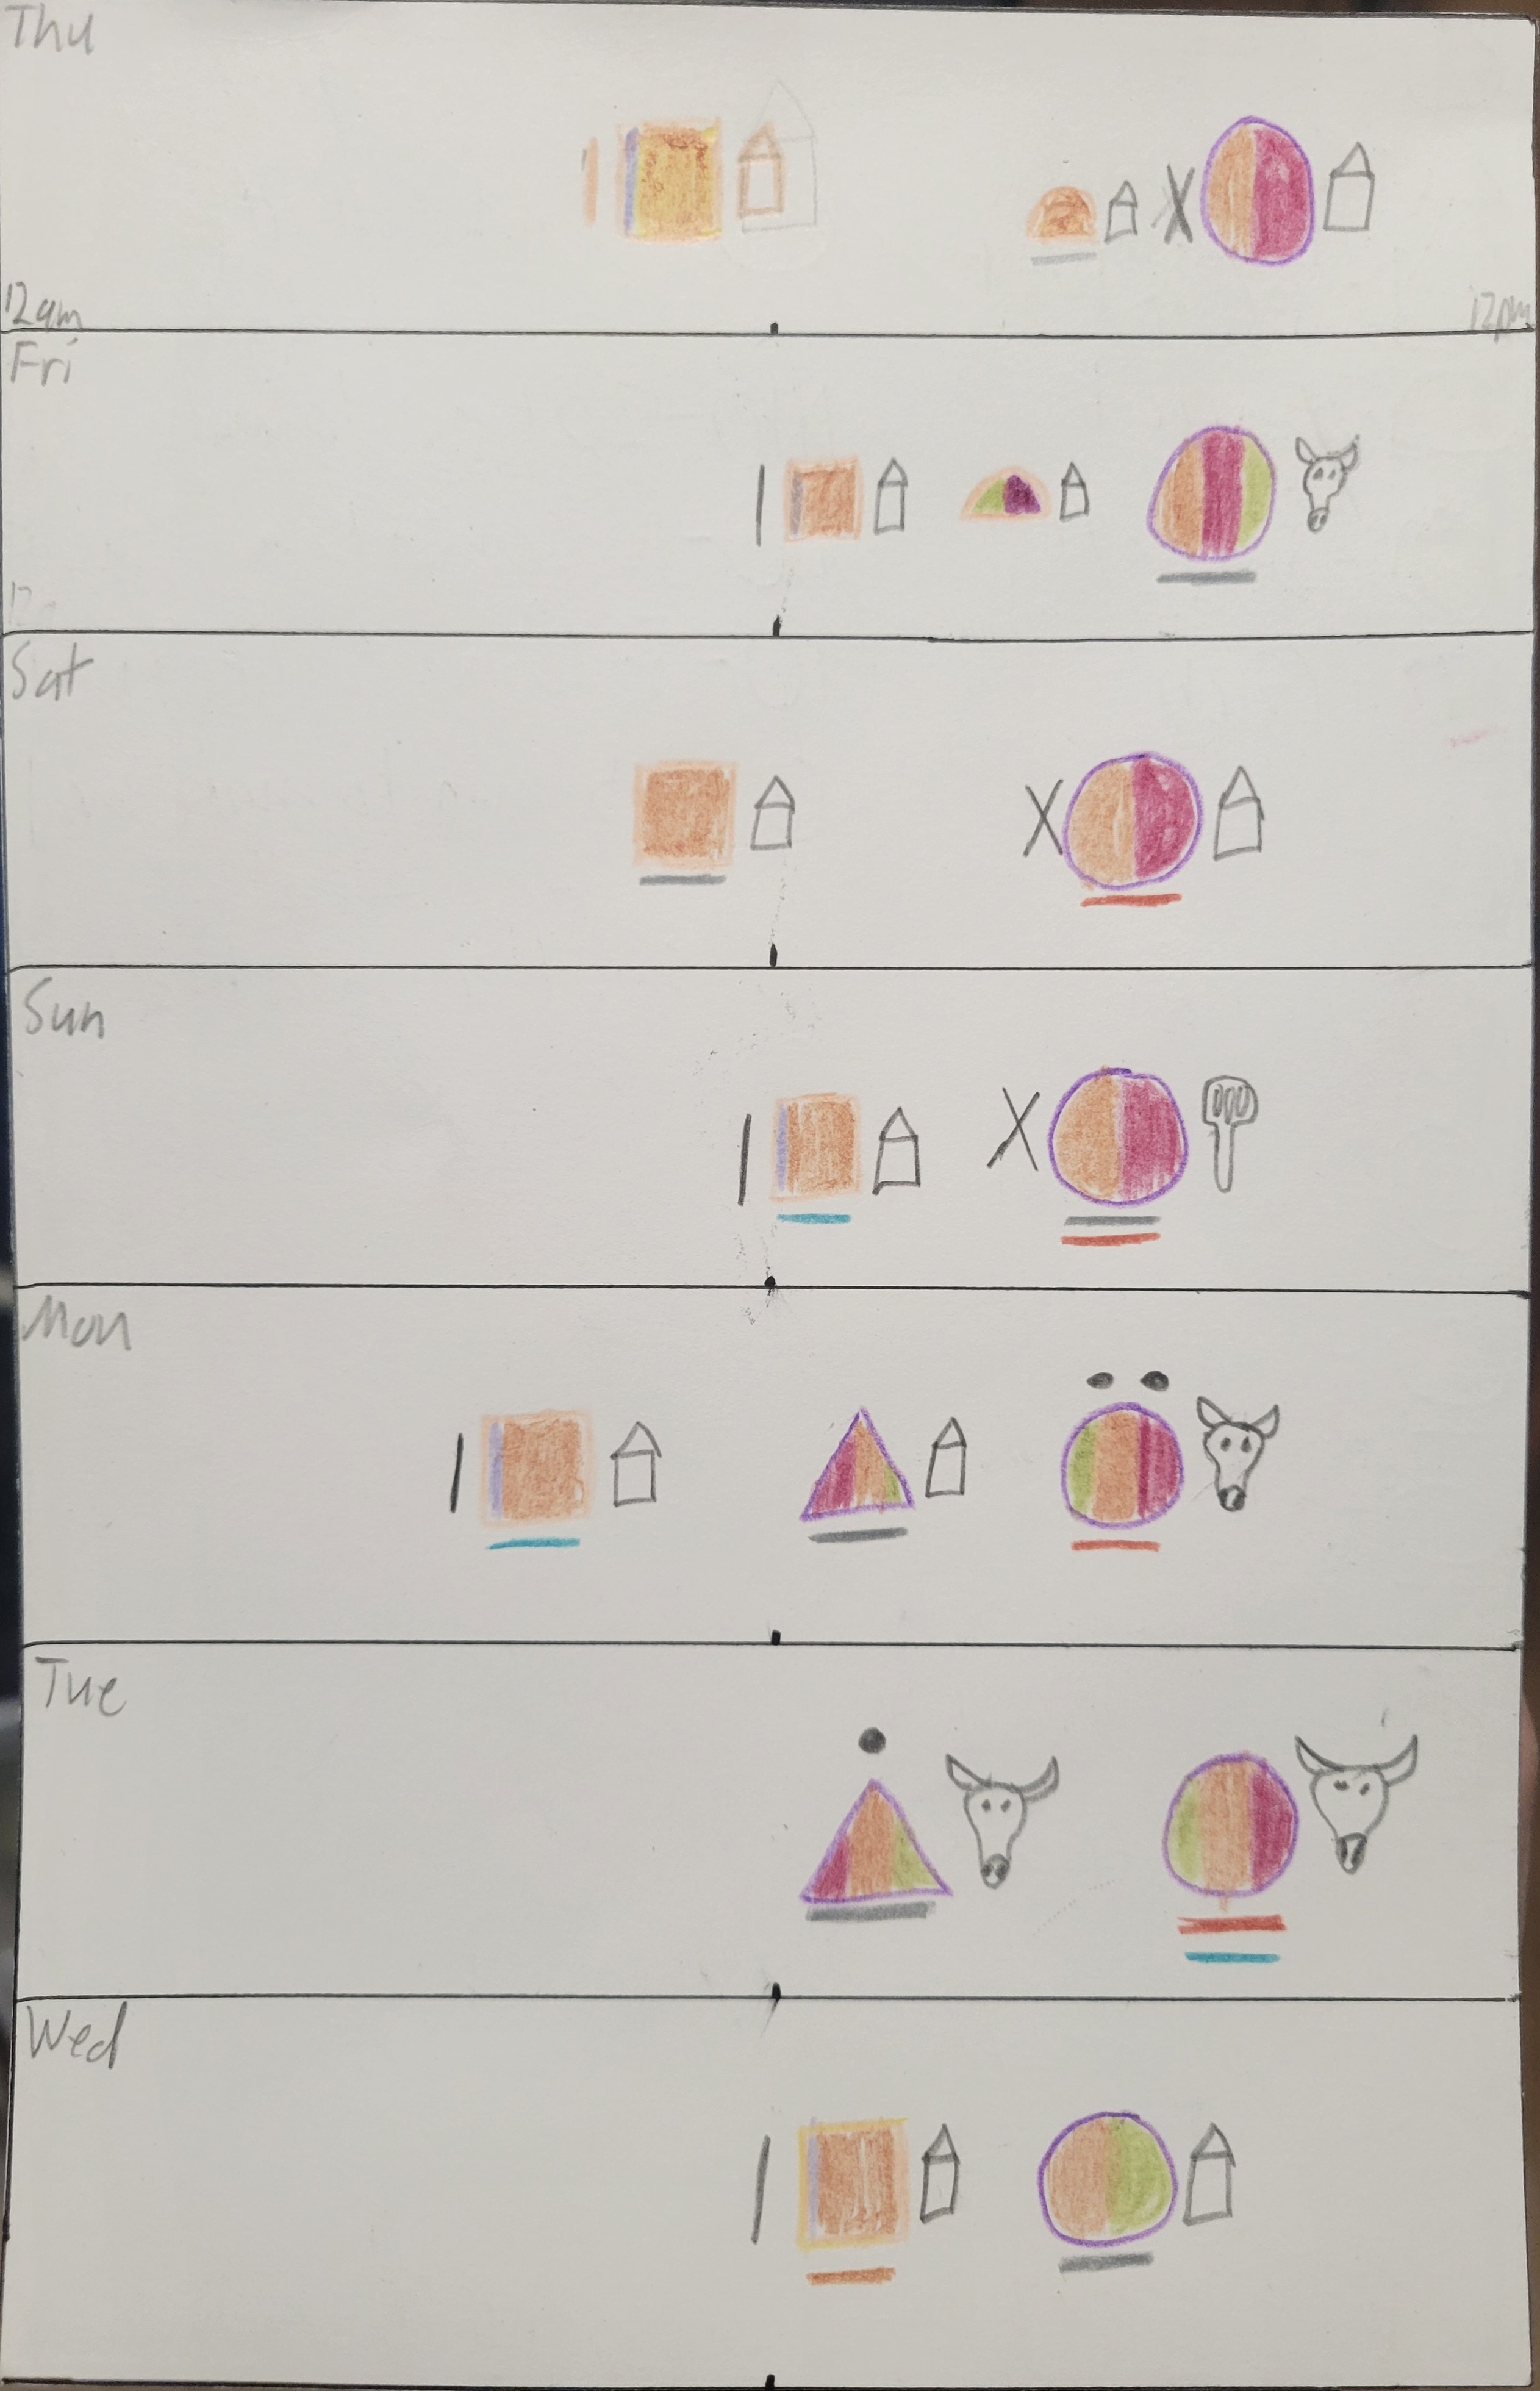 Thu
12am
12pm
Fri
Sat
Sun
Mon
Tue
Wed